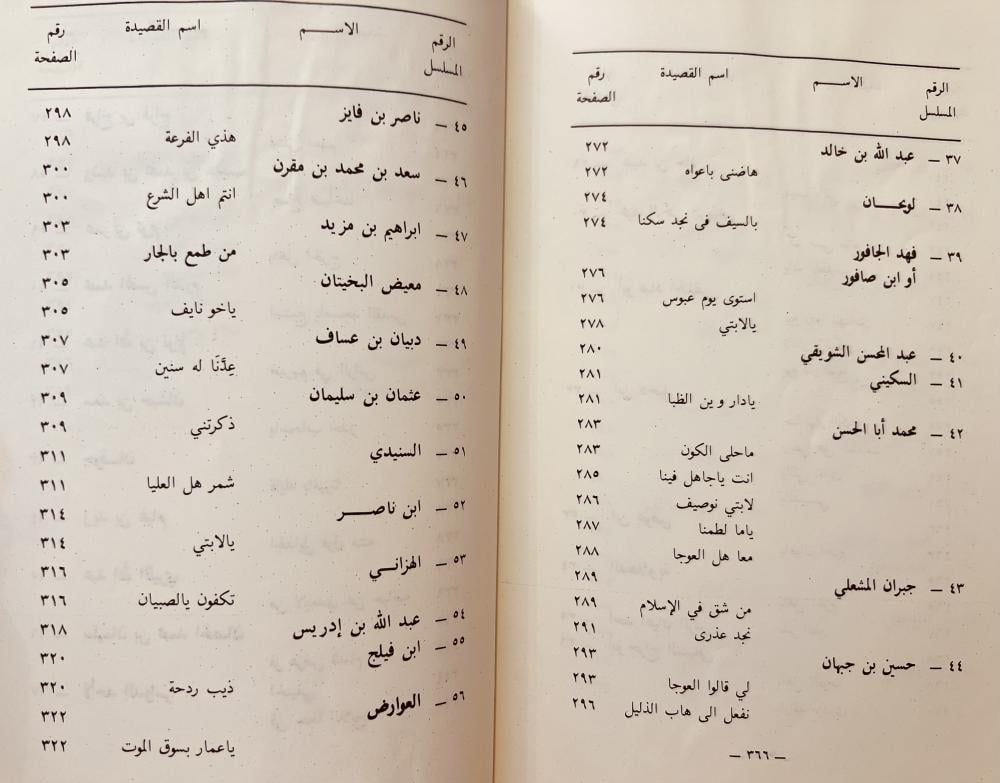 الرقم المسلسل الاســـم اسم القصيدة رقم الصفحة
٣٧ — عبد الله بن خالد ٢٧٢
هاضنى باعواه ٢٧٢
٣٨ — لويحـــان ٢٧٤
بالسيف فى نجد سكنا ٢٧٤
٣٩ — فهد الجافور
أو ابن صافور ٢٧٦
استوى يوم عبوس ٢٧٦
يالابتي ٢٧٨
٤٠ — عبد المحسن الشويقي ٢٨٠
٤١ — السكيني ٢٨١
يادار وين الظبا ٢٨١
٤٢ — محمد أبا الحسن ٢٨٣
ماحلى الكون ٢٨٣
انت ياجاهل فينا ٢٨٥
لابتي نوصيف ٢٨٦
ياما لطمنا ٢٨٧
معا هل العوجا ٢٨٨
٤٣ — جبران المشعلي ٢٨٩
من شق في الإسلام ٢٨٩
نجد عذرى ٢٩١
٤٤ — حسين بن جبهان ٢٩٣
لي قالوا العوجا ٢٩٣
نفعل الى هاب الذليل ٢٩٦
— ٣٦٦ —
الرقم المسلسل الاســـم اسم القصيدة رقم الصفحة
٤٥ — ناصر بن فايز ٢٩٨
هذي الفرعة ٢٩٨
٤٦ — سعد بن محمد بن مقرن ٣٠٠
انتم اهل الشرع ٣٠٠
٤٧ — ابراهيم بن مزيد ٣٠٣
من طمع بالجار ٣٠٣
٤٨ — معيض البخيتان ٣٠٥
ياخو نايف ٣٠٥
٤٩ — دبيان بن عساف ٣٠٧
عِدَّنَا له سنين ٣٠٧
٥٠ — عثمان بن سليمان ٣٠٩
ذكرتني ٣٠٩
٥١ — السنيدي ٣١١
شمر هل العليا ٣١١
٥٢ — ابن ناصـــر ٣١٤
يالابتي ٣١٤
٥٣ — الهزانـــي ٣١٦
تكفون يالصبيان ٣١٦
٥٤ — عبد الله بن إدريس ٣١٨
٥٥ — ابن فيلج ٣٢٠
ذيب ردحة ٣٢٠
٥٦ — العوارض ٣٢٢
ياعمار بسوق الموت ٣٢٢